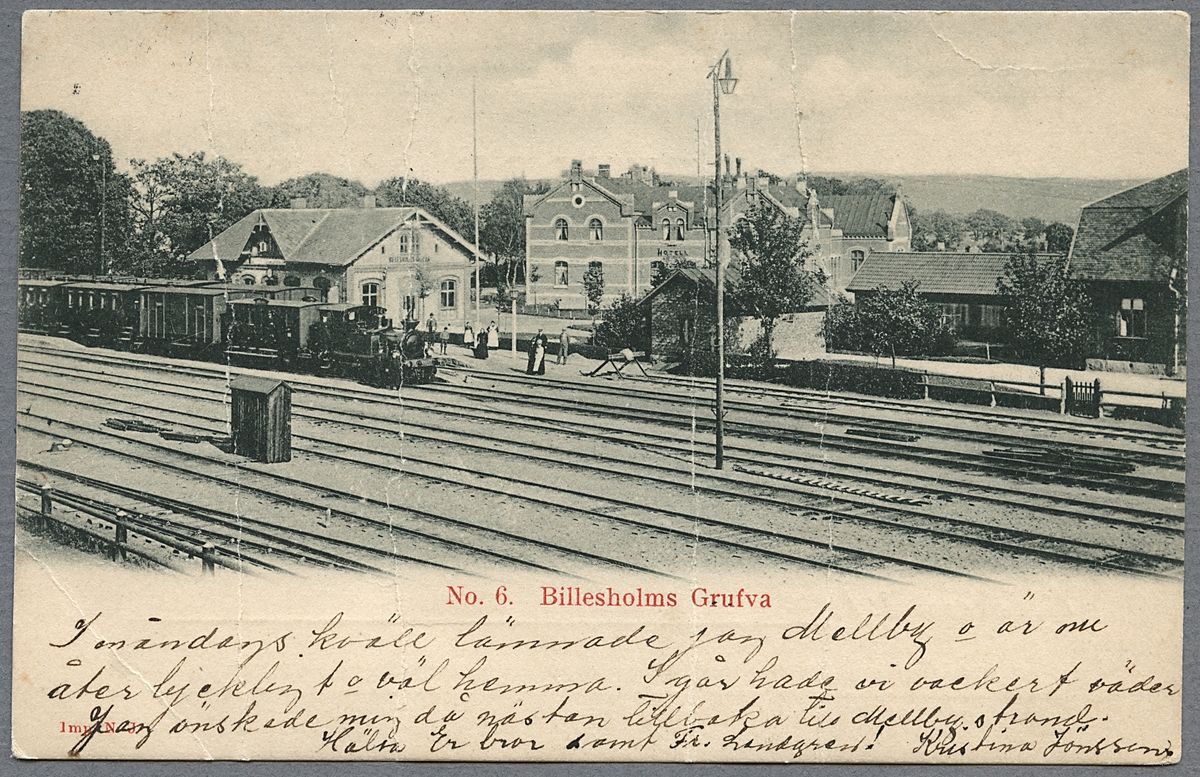 HOTELL
No. 6. Billesholms Grufva
I måndags kväll lämnade jag Mellby o är nu
åter lyckligt o väl hemma. I går hade vi vackert väder
Jag önskade mig då nästan tillbaka till Mellby strand.
Hälsa Er bror samt Fr. Landgren! Kristina Jönsson